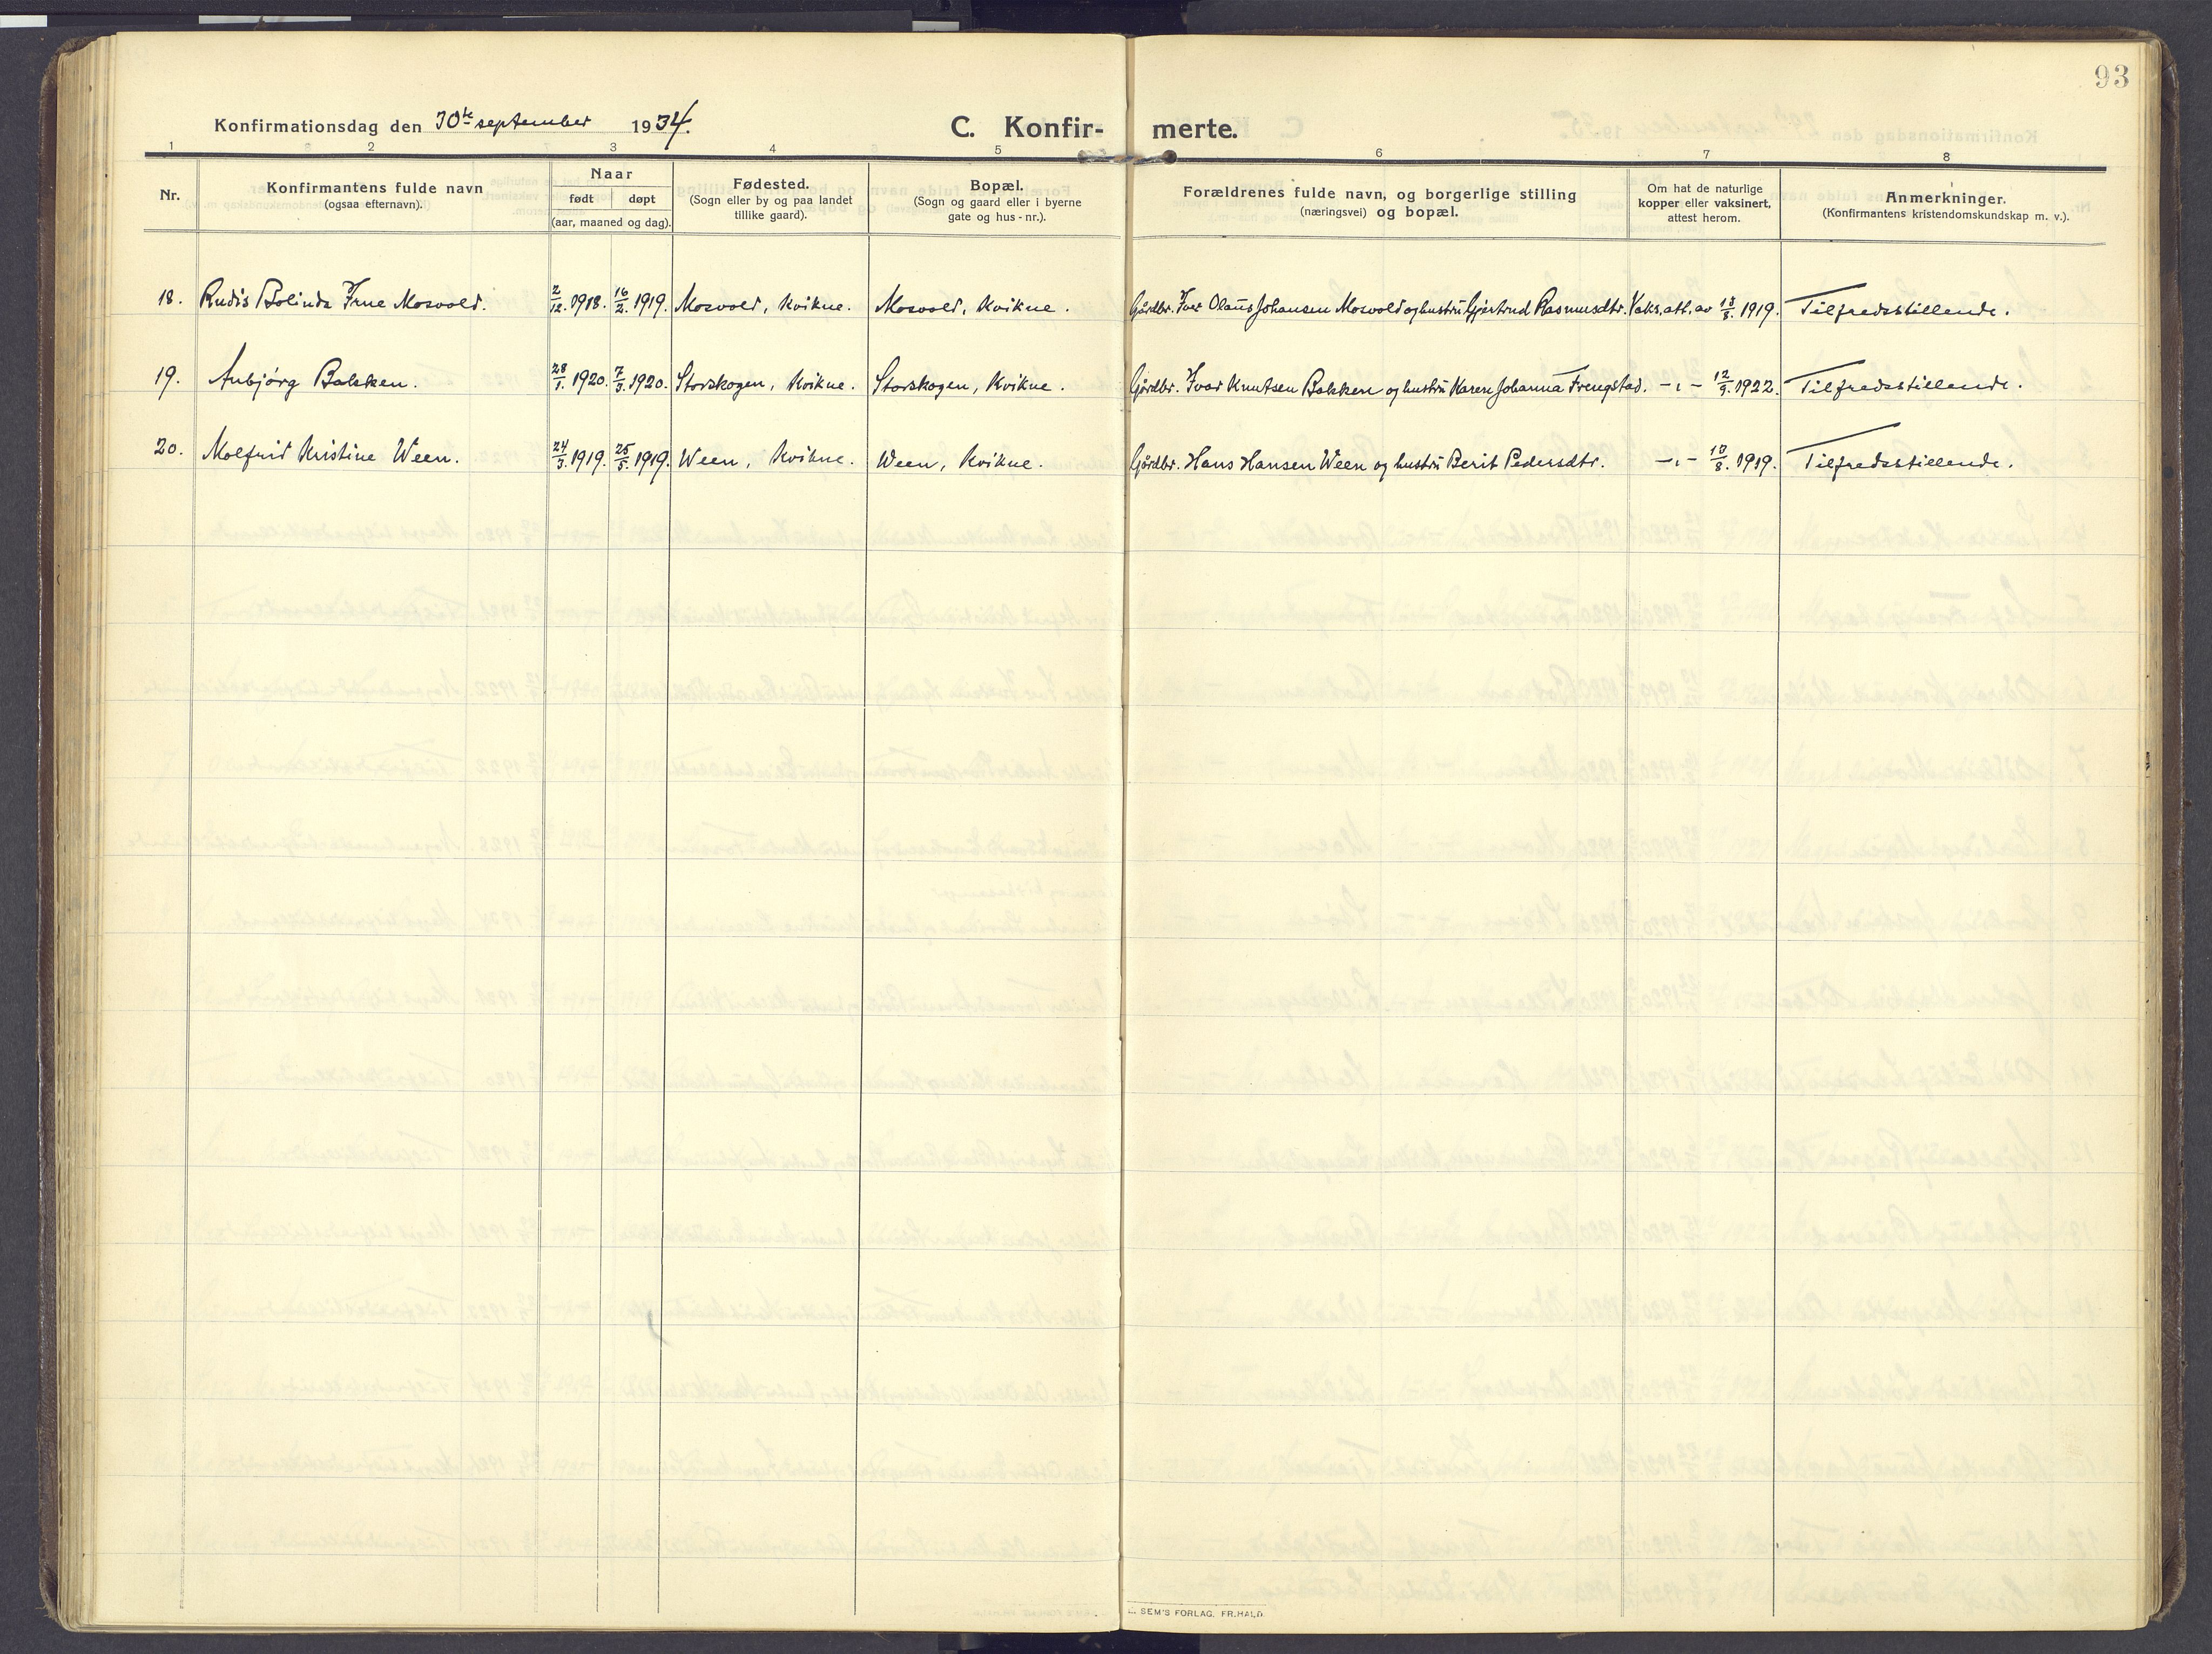 93
Konfirmationsdag den 30te september 1934.
C. Konfir- merte.
1 2 3 4 5 6 7 8
Nr.
Konfirmantens fulde navn
(ogsaa efternavn).
Naar
født døpt
(aar, maaned og dag).
Fødested.
(Sogn eller by og paa landet
tillike gaard).
Bopæl.
(Sogn og gaard eller i byerne
gate og hus - nr.).
Forældrenes fulde navn, og borgerlige stilling
(næringsvei) og bopæl.
Om hat de naturlige
kopper eller vaksinert,
attest herom.
Anmerkninger.
(Konfirmantens kristendomskundskap m. v.).
18. Rudis Bolinda Irne Mosvold. 2/12. 1918. 16/2. 1919. Mosvold, Kvikne. Mosvold, Kvikne. Gårdbr. Iver Olaus Johansen Mosvold og hustru Gjertrud Rasmusdtr. Vaks. att. av 18/8. 1919. Tilfredsstillende.
19. Anbjørg Bakken. 28/1. 1920. 7/3. 1920. Storskogen, Kvikne. Storskogen, Kvikne. Gårdbr. Ivar Knutsen Bakken og hustru Karen Johanna Frengstad. -"- 12/9. 1922. Tilfredsstillende.
20. Molfrid Kristine Ween. 24/3. 1919. 25/5. 1919. Ween, Kvikne. Ween, Kvikne. Gårdbr. Hans Hansen Ween og hustru Berit Pedersdtr. -"- 18/8. 1919. Tilfredsstillende.
SEM'S FORLAG. FR. HALD.